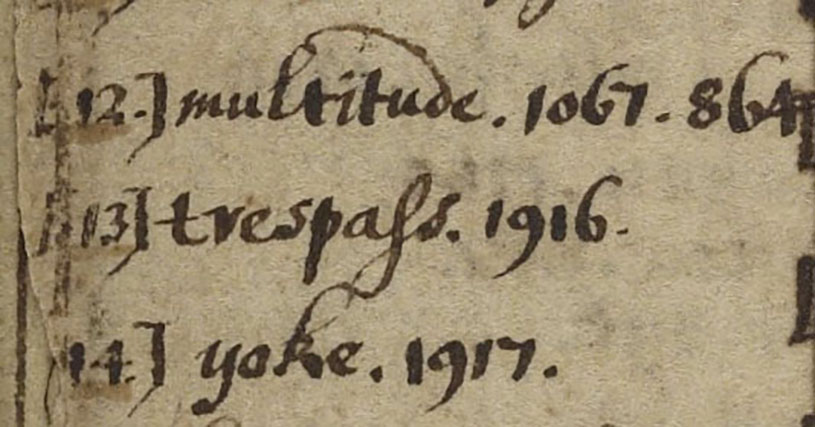 [12.] multitude. 1067. 864
[13] trespaſs. 1916.
14.] yoke. 1917.